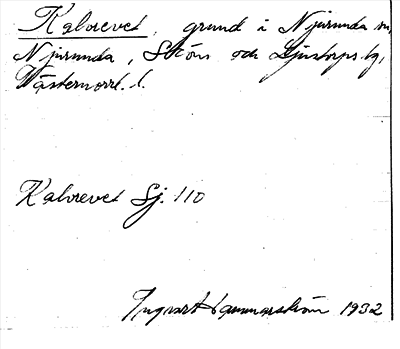 Kalvrevet, grund i Njurunda sn,
Njurunda, Sköns och Ljustorps tg,
Västernorrl. l.
Kalvrevet Sj. 110
Ingvart Hammarström 1932